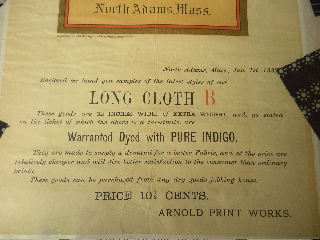 North Adams, Mass.
North Adams, Mass., Jan. 1st 1887.
Enclosed we hand you samples of the latest styles of our
LONG CLOTH B
These goods are 32 INCHES WIDE, of EXTRA WEIGHT, and, as stated
on the ticket of which the above is a fac-simile, are
Warranted Dyed with PURE INDIGO.
They are made to supply a demand for a better Fabric, and at the price are
relatively cheaper and will give better satisfaction to the consumer than ordinary
prints.
These goods can be purchased from any dry goods jobbing house.
PRICE 10½ CENTS.
ARNOLD PRINT WORKS.